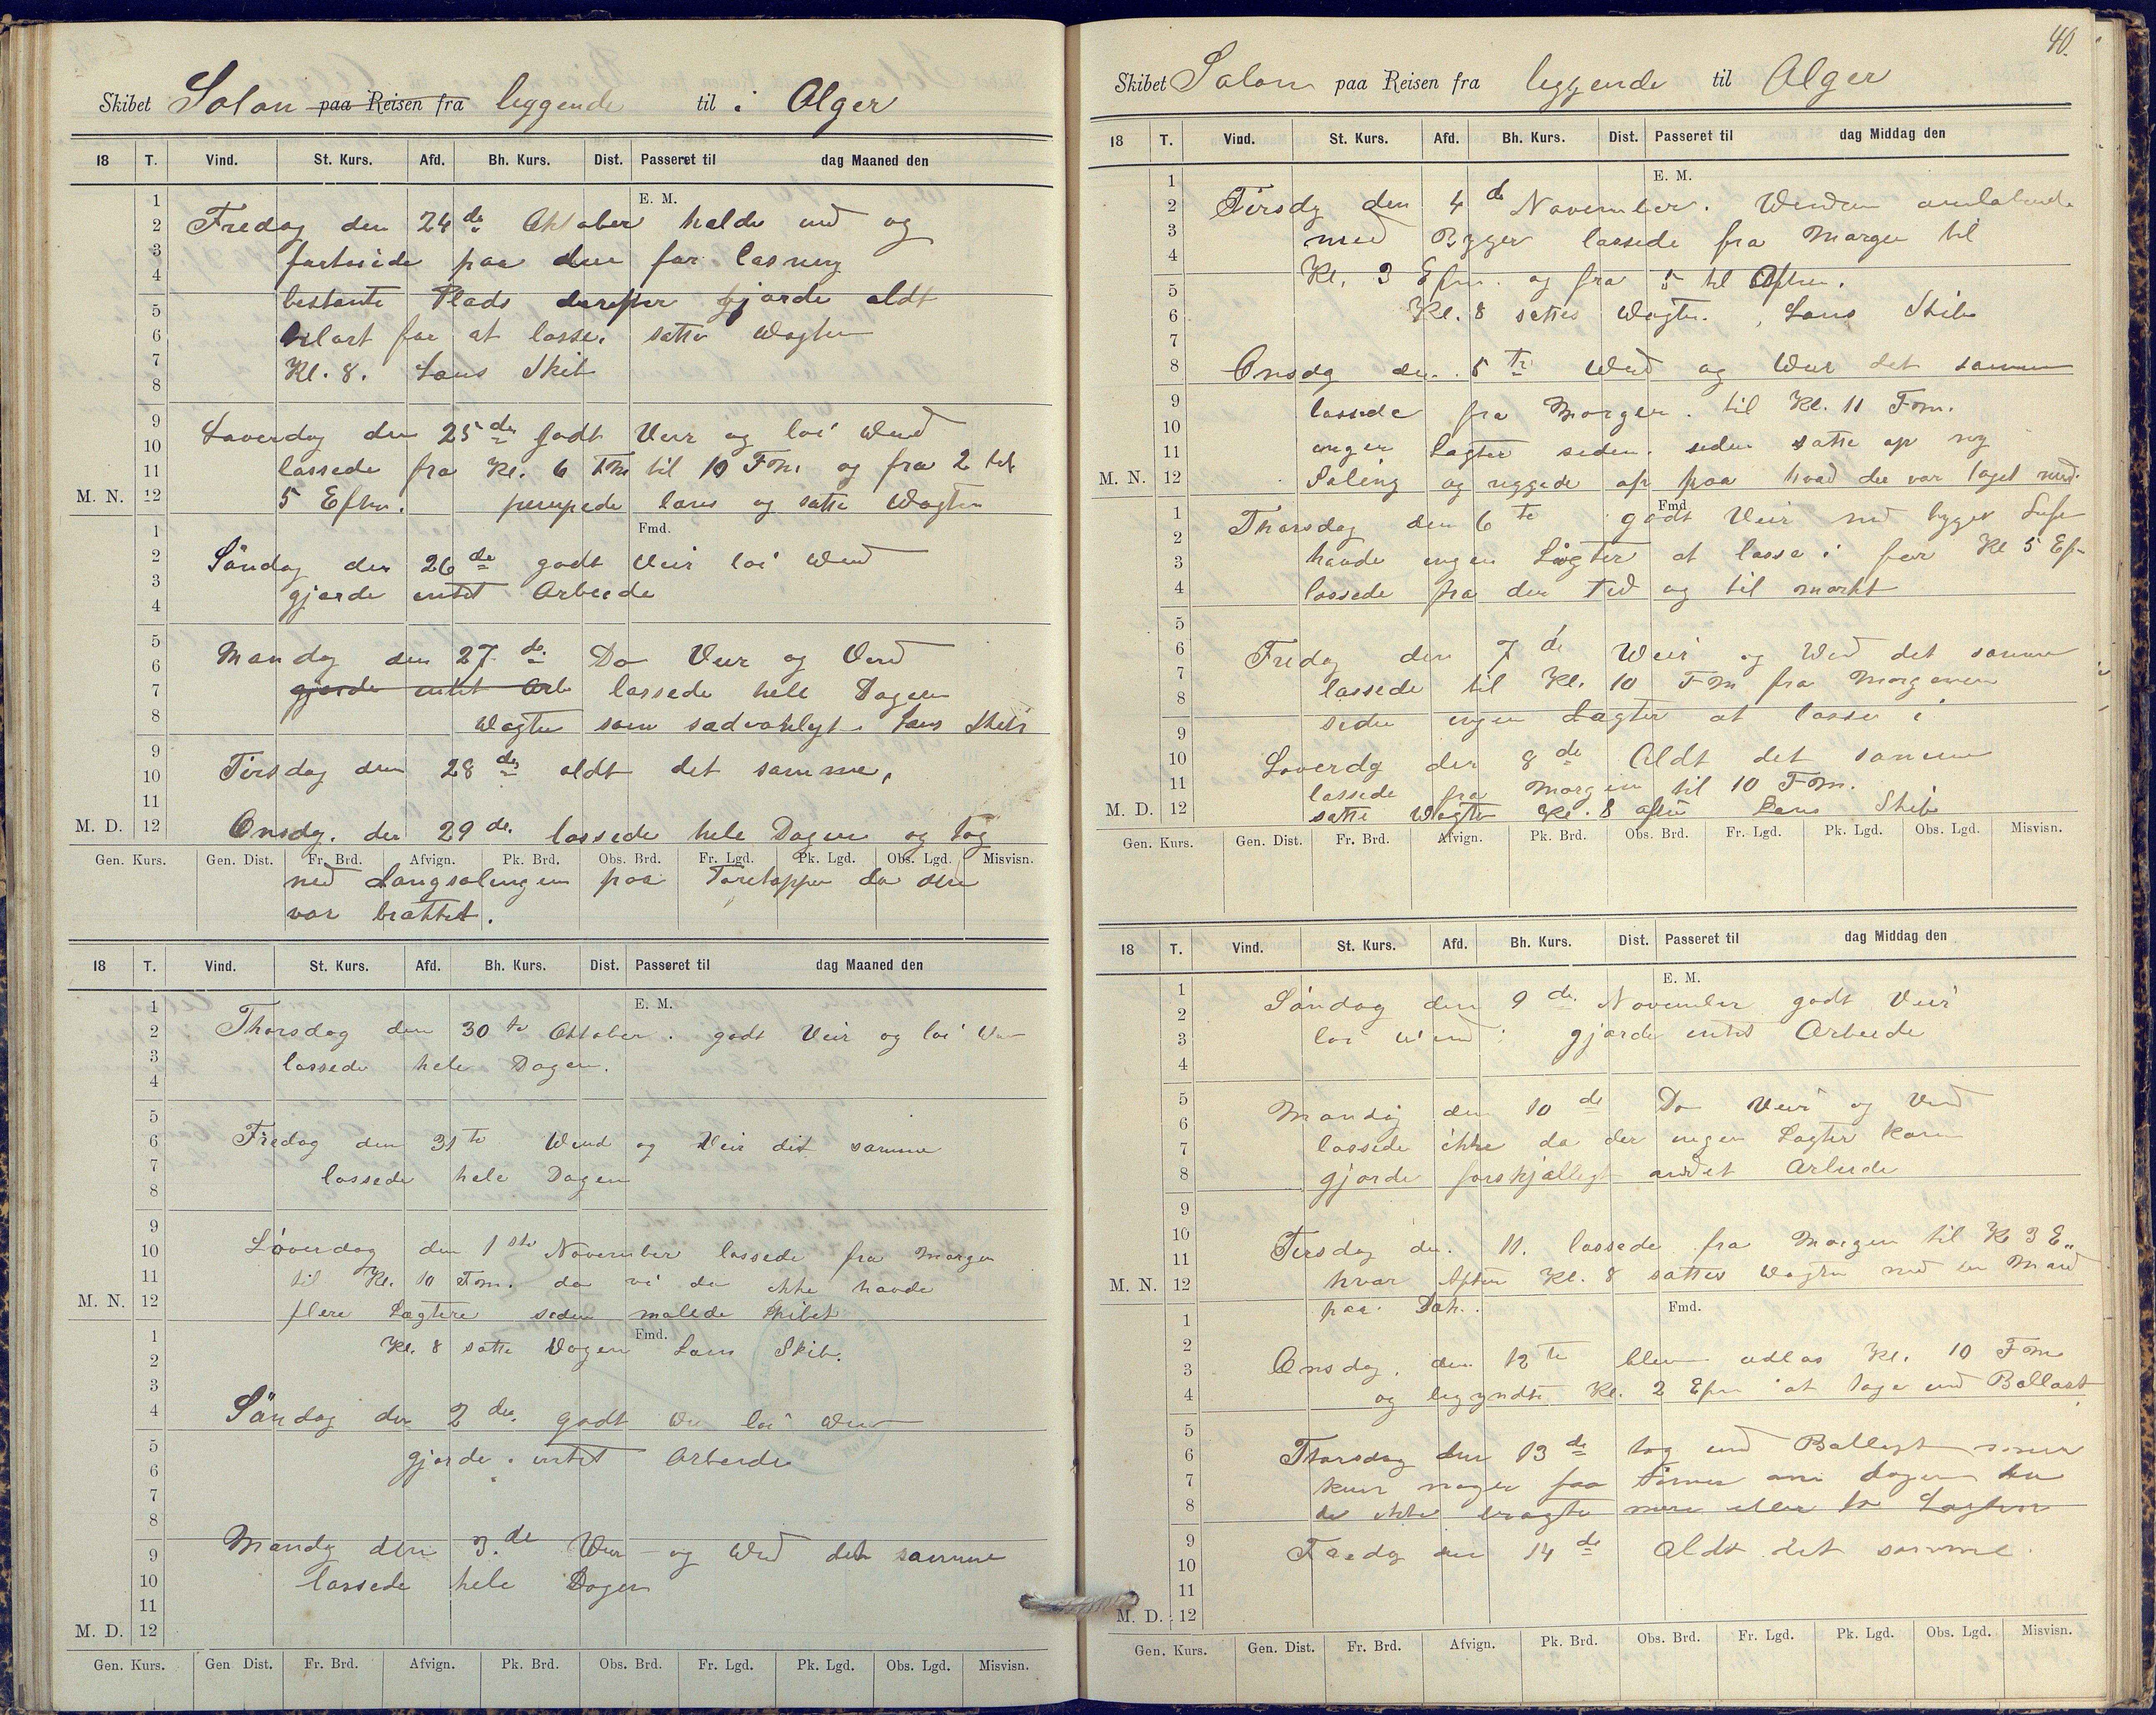 Skibet Solon paa Reisen fra leggende til i Alger
18 T. Vind. St. Kurs. Afd. Bh. Kurs. Dist. Passeret til dag Maaned den
E. M.
Fredag den 24de Oktober halde ind og
fortøiede paa den for losning
bestante Plads derefter gjorde aldt
klart for at losse. satte Wagten
Kl. 8. Lens Skib
Løverdag den 25de godt Veir og løi Wind
lossede fra Kl. 6 Fm til 10 Fm og fra 2 til
M. N. 12 5 Efm. pumpede lens og satte Wagten
Fmd.
Söndag den 26de godt Veir løi Wind
gjorde intet Arbeide
Mandag den 27de Do Veir og Vind
gjorde intet Arb lossede hele Dagen
Wagten som sædvanligt. Lens Skib
Tirsdag den 28de aldt det samme,
M. D. 12 Onsdg. den 29de. lossede hele Dagen og tog
Gen. Kurs. Gen. Dist. Fr. Brd. Afvign. Pk. Brd. Obs. Brd. Fr. Lgd. Pk. Lgd. Obs. Lgd. Misvisn.
ned Langsalingen paa Foretoppen da den
var brækket.
18 T. Vind. St. Kurs. Afd. Bh. Kurs. Dist. Passeret til dag Maaned den
E. M.
Thorsdag den 30te Oktober. godt Veir og løi
lossede hele Dagen.
Fredag den 31te Wind og Veir det samme
lossede hele Dagen
Løverdag den 1ste November lossede fra Morgen
til Kl. 10 Fm. da vi da ikke havde
M. N. 12 flere Lægtere siden malede Skibet
Fmd.
Kl. 8 satte Vagen Lens Skib.
Söndag den 2de. godt løi
gjorde intet Arbeide
Mandg den 3.de Veir og Wind det samme
lossede hele Dagen
M. D. 12
Gen. Kurs. Gen Dist. Fr. Brd. Afvign. Pk. Brd. Obs. Brd. Fr. Lgd. Pk. Lgd. Obs. Lgd. Misvisn.
40.
Skibet Solon paa Reisen fra leggende til Alger
18 T. Vind. St. Kurs. Afd. Bh. Kurs. Dist. Passeret til dag Middag den
E. M.
Tirsdg den 4de November. Winden omløbende
med Bygger lossede fra Morgen til
Kl. 3 Efm. og fra 5 til Aften.
Kl. 8 sattes Wagten. Lens Skib
Onsdg den 5te Wind og Weir det samme
lossede fra Morgen. til Kl. 11 Fm.
ingen Lægter siden. siden satte op ny
M. N. 12 Saling og riggede op paa hvad der var taget ned.
Fmd.
Thorsdag den 6te godt Veir med bygger Luft
havde ingen Lægter at losse i før Kl 5 Ef
lossede fra den Tid og til mørkt
Fredag den 7de Weir og Wind det samme
lossede til Kl. 10 Fm fra Morgenen
siden ingen Lægter at losse i
Løverdg den 8de Aldt det samme
lossede fra Morgen til 10 Fm.
M. D. 12 satte Wagten Kl. 8 aften Lens Skib
Gen. Kurs. Gen. Dist. Fr. Brd. Afvign. Pk. Brd. Obs. Brd. Fr. Lgd. Pk. Lgd. Obs. Lgd. Misvisn.
18 T. Vind. St. Kurs. Afd. Bh. Kurs. Dist. Passeret til dag Middag den
E. M.
Söndag den 9de. November godt Veir
løi Wind gjorde intet Arbeide
Mandag den 10de Do Veir og Vind
lossede ikke da der ingen Lægter kom
gjorde forskjælligt andet Arbeide
Tirsdag den. 11. lossede fra Morgen til Kl 3 E
M. N. 12 hver Aften Kl. 8 sattes Wagten med en Mand
paa Dæk.
Fmd.
Onsdag. den 12te blev udlos Kl. 10 Fm
og begyndte Kl. 2 Efm at tage ind Ballast
Thorsdag den 13de tog ind Ballast
kun nogen faa timer om dagen da
de ikke bragte mere eller to Lægter
Fredag den 14de Aldt det samme.
M. D. 12
Gen. Kurs. Gen. Dist. Fr. Brd. Afvign. Pk. Brd. Obs. Brd. Fr. Lgd. Pk. Lgd. Obs. Lgd. Misvisn.